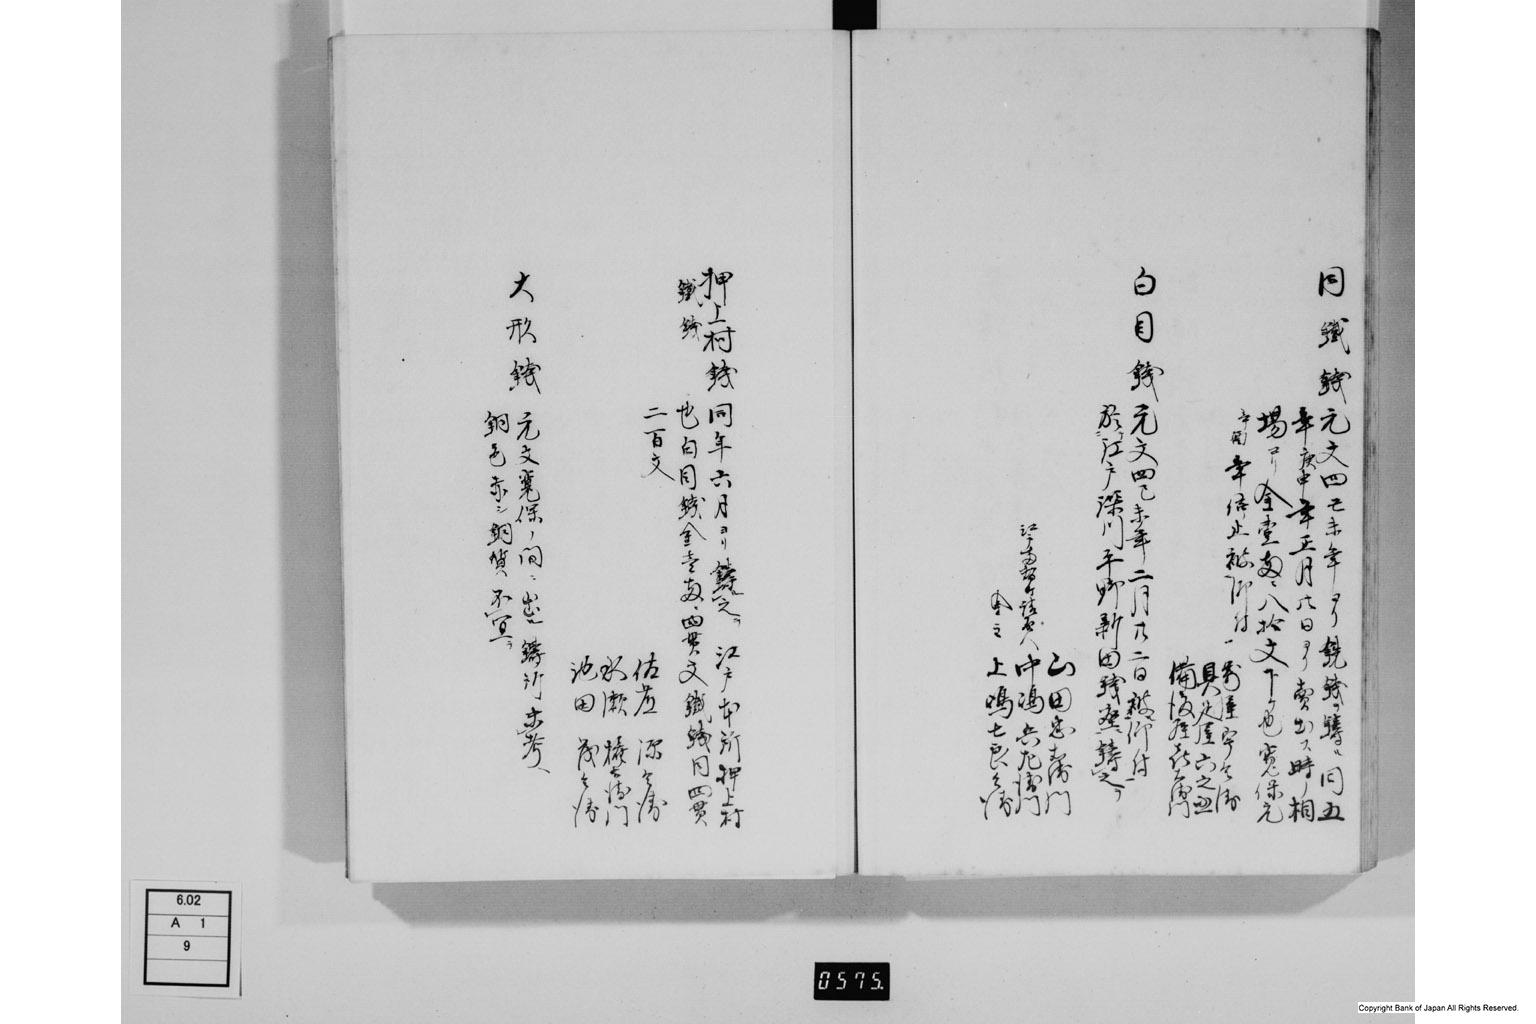 同鐵錢 元文四己未年ヨリ銑錢ヲ鑄ル同五
年庚申年正月廿八日ヨリ賣出ス時ノ相
場ヨリ金壹兩ニ八拾文下ケ也寛保元
辛酉年停止被仰付
具足屋六之丞
白目錢 元文四己未年二月廿二日被仰付
於江戸深川平野新田錢座鑄之
山田
中嶋兵左衛門
上嶋七良兵衛
押上村錢 同年六月ヨリ鑄之 江戸本所押上村
鐵錢 也白目錢金壹兩ニ四貫文鐵錢同四貫
二百文
源兵衛
池田 茂兵衛
大形錢 元文寛保ノ間ニ出ル鑄所未考
銅色赤シ銅質不宜
6.02
A 1
9
0575.
Copyright Bank of Japan All Rights Reserved.